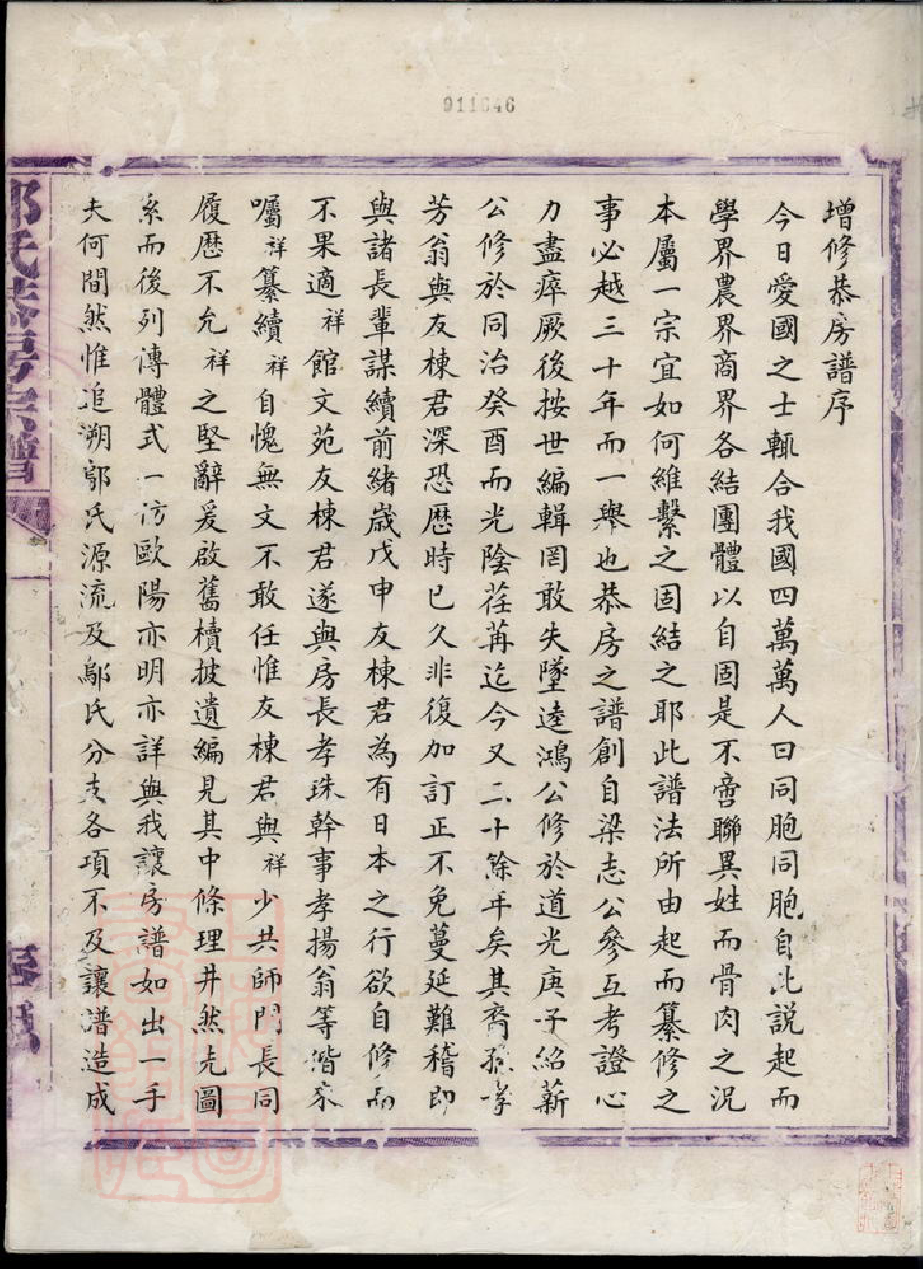 911646
增修恭房譜序
今日愛國之士輒合我國四萬萬人曰同胞同胞自此説起而
學界農界商界各結團體以自固是不啻聯異姓而骨肉之況
本屬一宗宜如何維繫之固結之耶此譜法所由起而纂修之
事必越三十年而一舉也恭房之譜創自梁志公參互考證心
力盡瘁厥後按世編輯罔敢失墜逵鴻公修於道光庚子紹薪
公修於同治癸酉而光陰荏苒迄今又二十餘年矣其裔孫孝
芳翁與友棟君深恐歷時已久非復加訂正不免蔓延難稽即
與諸長輩謀續前緒歲戊申友棟君為有日本之行欲自修而
不果適祥館文苑友棟君遂與房長孝珠幹事孝揚翁等偕來
囑祥纂續祥自愧無文不敢任惟友棟君與祥少共師門長同
履歷不允祥之堅辭爰啟舊櫝披遺編見其中條理井然先圖
系而後列傳體式一仿歐陽亦明亦詳與我讓房譜如出一手
夫何間然惟追溯鄔氏源流及鄔氏分支各項不及讓譜造成
氏恭房宗譜
一